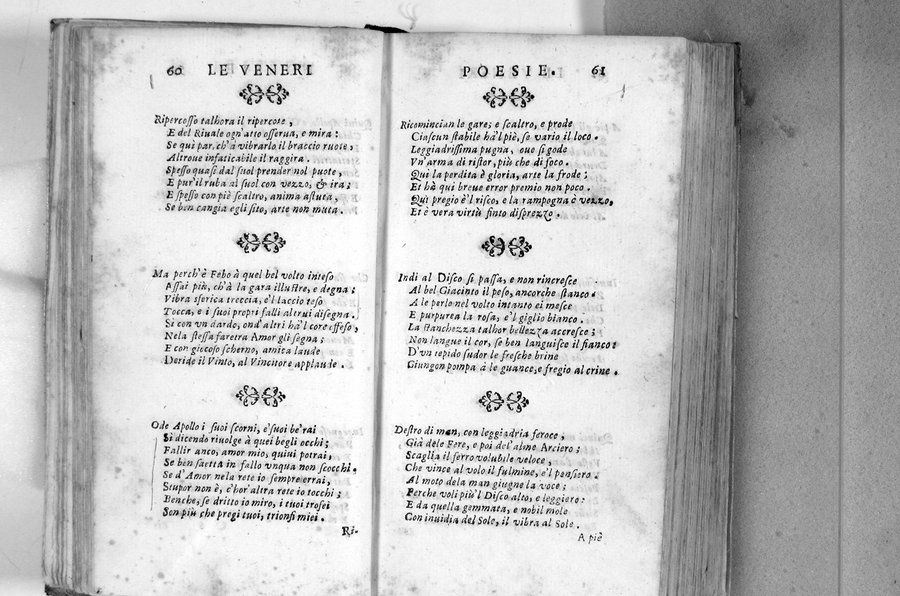 60 LE VENERI
Ripercosso talhora il ripercote,
E del Riuale ogn'atto osserua, e mira:
Se qui par, ch'à vibrarlo il braccio ruote,
Altroue infaticabile il raggira.
Spesso quasi dal suol prender nol puote,
E pur'il ruba al suol con vezzo, & ira;
E spesso con piè scaltro, anima astuta,
Se ben cangia egli sito, arte non muta.
Ma perch'è Febo à quel bel volto inteso
Assai più, ch'à la gara illustre, e degna;
Vibra sferica treccia, e'l laccio teso
Tocca, e i suoi propri falli altrui disegna.
Si con vn dardo, ond'altri hà'l core offeso,
Nela stessa faretra Amor gli segna;
E con giocoso scherno, amica laude
Deride il Vinto, al Vincitore applaude.
Ode Apollo i suoi scorni, e'suoi be'rai
Si dicendo riuolge à quei begli occhi;
Fallir anco, amor mio, quiui potrai,
Se ben saetta in fallo vnqua non scocchi.
Se d'Amor nela rete io sempre errai,
Stupor non è, c'hor'altra rete io tocchi;
Benche, se dritto io miro, i tuoi trofei
Son più che pregi tuoi, trionfi miei.
Ri-
POESIE. 61
Ricomincian le gare; e scaltro, e prode
Ciascun stabile hà'l piè, se vario il loco.
Leggiadrissima pugna, oue si gode
Vn'arma di ristor, più che di foco.
Qui la perdita è gloria, arte la frode;
Et hà qui breue error premio non poco.
Qui pregio è'l risco, e la rampogna è vezzo,
Et è vera virtù finto disprezzo.
Indi al Disco si passa, e non rincresce
Al bel Giacinto il peso, ancorche stanco.
A le perle nel volto intanto ei mesce
E purpurea la rosa, e'l giglio bianco.
La stanchezza talhor bellezza accresce;
Non langue il cor, se ben languisce il fianco:
D'vn tepido sudor le fresche brine
Giungon pompa à le guance, e fregio al crine.
Destro di man, con leggiadria feroce,
Già dele Fere, e poi del'alme Arciero;
Scaglia il ferro volubile veloce,
Che vince al volo il fulmine, e'l pensiero.
Al moto dela man giugne la voce;
Perche voli più'l Disco alto, e leggiero:
E da quella gemmata, e nobil mole
Con inuidia del Sole, il vibra al Sole.
A piè